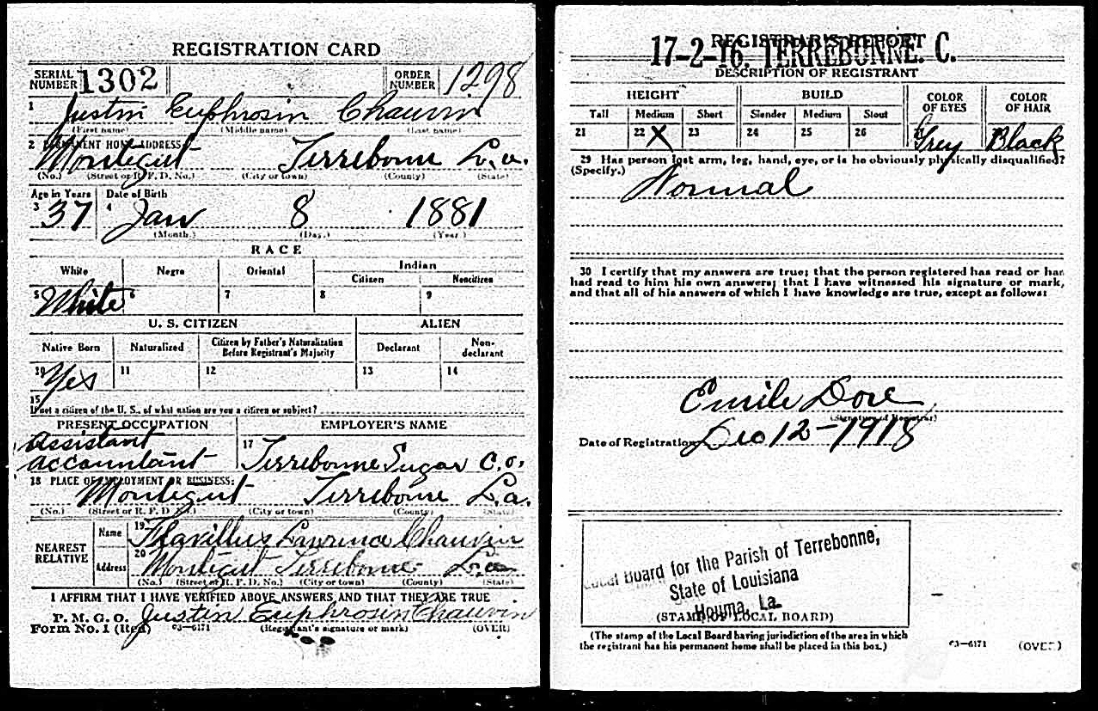 REGISTRATION CARD
SERIAL NUMBER 1302 ORDER NUMBER 1298
1 Justin Euphrosin Chauvin
(First name) (Middle name) (Last name)
2 PERMANENT HOME ADDRESS:
Montegut Terrebonne La.
(No.) (Street or R. F. D. No.) (City or town) (County) (State)
Age in Years Date of Birth
3 37 4 Jan 8 1881
(Month.) (Day.) (Year.)
RACE
White Negro Oriental Indian
Citizen Noncitizen
5 White 6 7 8 9
U. S. CITIZEN ALIEN
Native Born Naturalized Citizen by Father's Naturalization Before Registrant's Majority Declarant Non-declarant
10 Yes 11 12 13 14
15
If not a citizen of the U. S., of what nation are you a citizen or subject?
PRESENT OCCUPATION EMPLOYER'S NAME
assistant accountant 17 Terrebonne Sugar Co.
18 PLACE OF EMPLOYMENT OR BUSINESS:
Montegut Terrebonne La.
(No.) (Street or R. F. D. No.) (City or town) (County) (State)
NEAREST RELATIVE
Name 19 Lawrence Chauvin
Address 20 Montegut Terrebonne La
(No.) (Street or R. F. D. No.) (City or town) (County) (State)
I AFFIRM THAT I HAVE VERIFIED ABOVE ANSWERS AND THAT THEY ARE TRUE
P. M. G. O.
Form No. 1 (Red) 03-6171 Justin Euphrosin Chauvin
(Registrant's signature or mark) (OVER)
REGISTRAR'S REPORT
17-2-16. TERREBONNE. C.
DESCRIPTION OF REGISTRANT
HEIGHT BUILD COLOR OF EYES COLOR OF HAIR
Tall Medium Short Slender Medium Stout
21 22 X 23 24 25 26 Grey Black
29 Has person lost arm, leg, hand, eye, or is he obviously physically disqualified?
(Specify.) Normal
30 I certify that my answers are true; that the person registered has read or has
had read to him his own answers; that I have witnessed his signature or mark,
and that all of his answers of which I have knowledge are true, except as follows:
Emile Dore
(Signature of Registrar)
Date of Registration 12-1918
Local Board for the Parish of Terrebonne,
State of Louisiana
Houma, La.
(STAMP OF LOCAL BOARD)
(The stamp of the Local Board having jurisdiction of the area in which
the registrant has his permanent home shall be placed in this box.)
03-6171 (OVER)